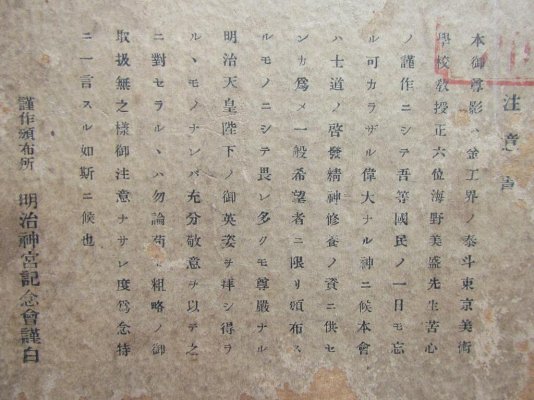 注意書
本御尊影ハ金工界ノ泰斗東京美術
學校敎授正六位海野美盛先生苦心
ノ謹作ニシテ吾等國民ノ一日モ忘
ル可カラザル偉大ナル神ニ候本會
ハ士道ノ啓發精神修養ノ資ニ供セ
ンカ爲メ一般希望者ニ限リ頒布ス
ルモノニシテ畏レ多クモ尊嚴ナル
明治天皇陛下ノ御英姿ヲ拜シ得ラ
ルヽモノナレバ充分敬意ヲ以テ之
ニ對セラルヽハ勿論苟モ粗略ノ御
取扱無之樣御注意ナサレ度爲念特
ニ一言スル如斯ニ候也
謹作頒布所 明治神宮記念會謹白